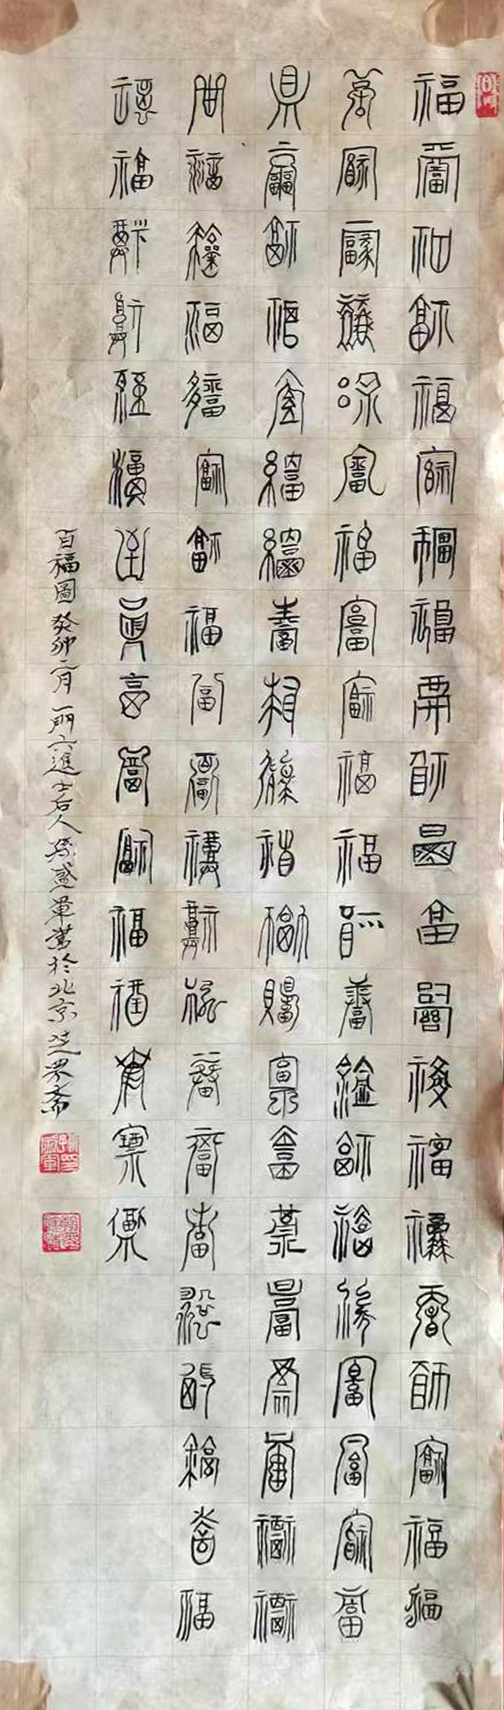 福福福福福福福福福福福福福福福福福福福福福
福福福福福福福福福福福福福福福福福福福福福
福福福福福福福福福福福福福福福福福福福福福
福福福福福福福福福福福福福福福福福福福福福
福福福福福福福福福福福福福福福福
百福圖 癸卯二月 一門六進士后人孫盛軍書於北京